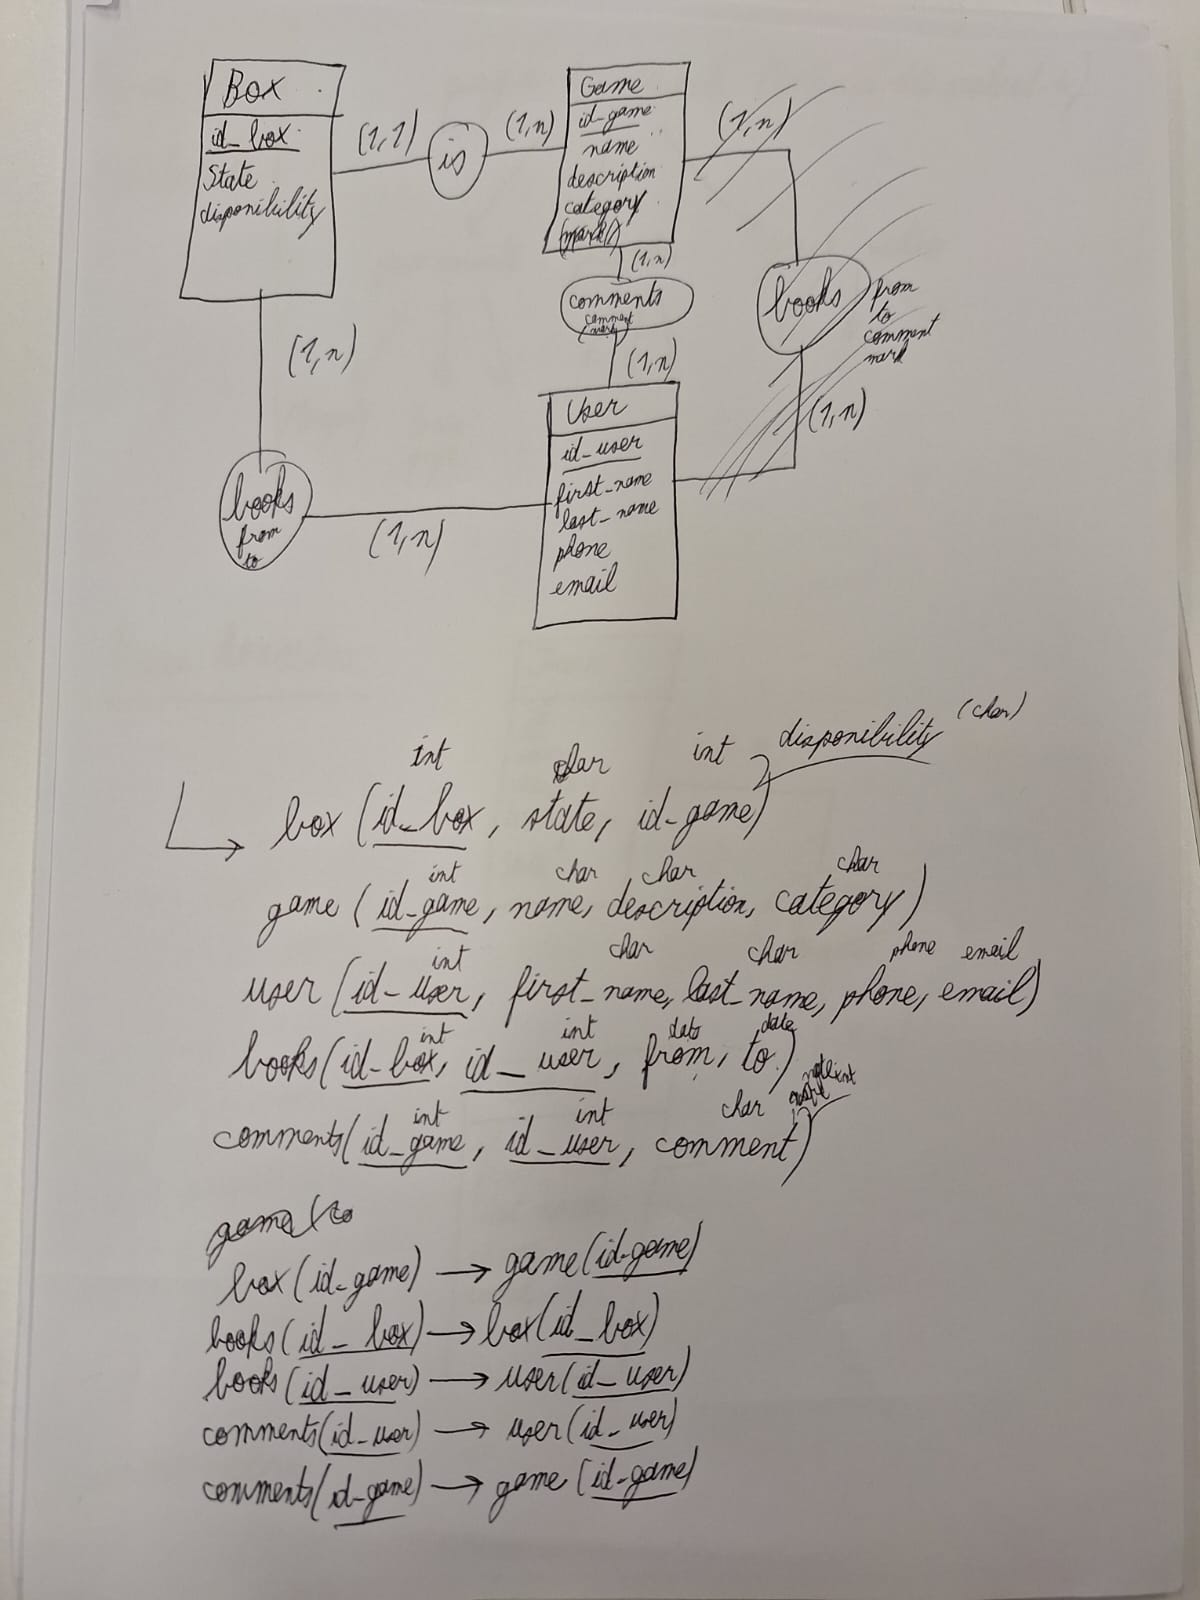 Box
id_box
State
disponibility
(1,1)
is
(1,n)
Game
id_game
name
description
category
(mark)
(1,n)
books
from
to
comment
mark
(1,n)
(1,n)
comments
comment
mark
(1,n)
(1,n)
books
from
to
(1,n)
User
id_user
first_name
last_name
phone
email
int char int disponibility (char)
box (id_box, state, id_game)
int char char char
game (id_game, name, description, category)
int char char phone email
user (id_user, first_name, last_name, phone, email)
int int date date
books(id_box, id_user, from, to)
int int char int
comments(id_game, id_user, comment)
game (to
box(id_game) → game(id_game)
books(id_box) → box(id_box)
books(id_user) → user(id_user)
comments(id_user) → user(id_user)
comments(id_game) → game(id_game)